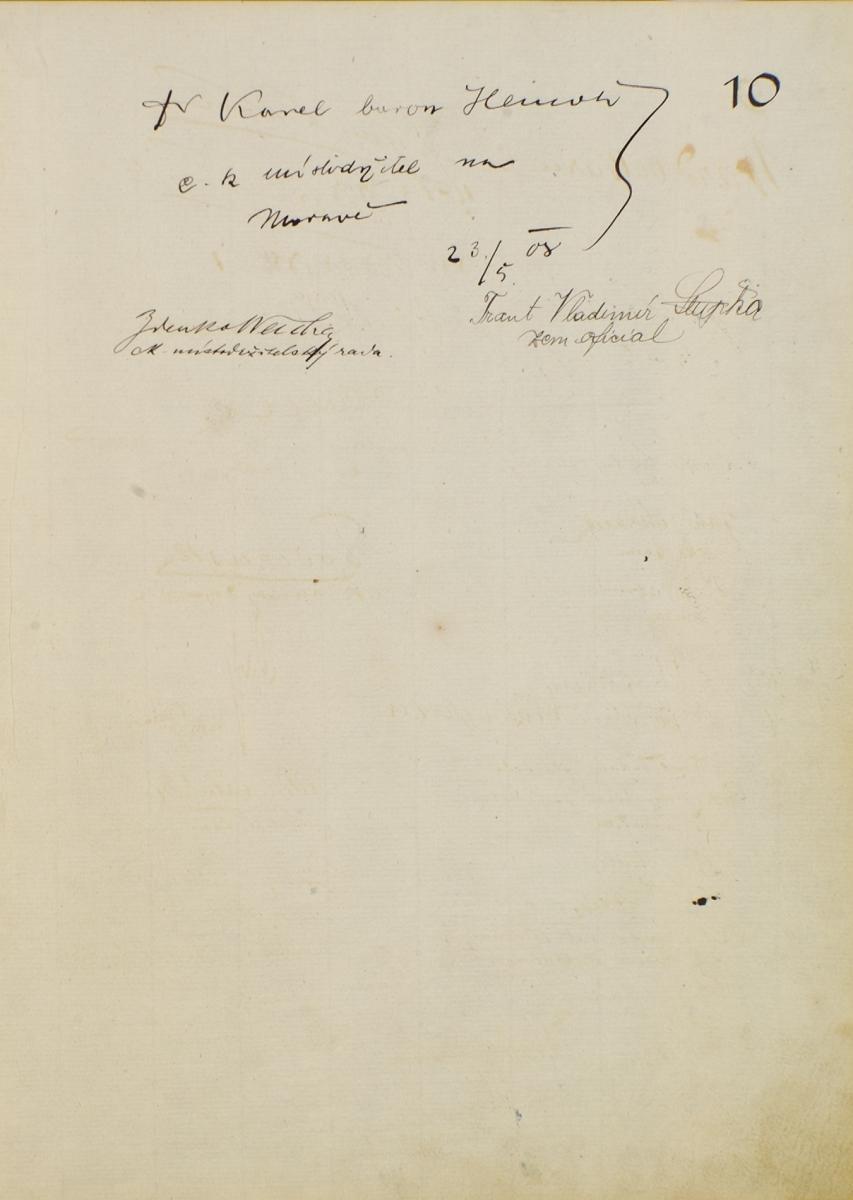 10
Dr Karel baron Heinold
c. k místodržitel na
Moravě
23/5 08
Frant Vladimír
zem. oficial
Zdenko
ck. místodržitelský rada.